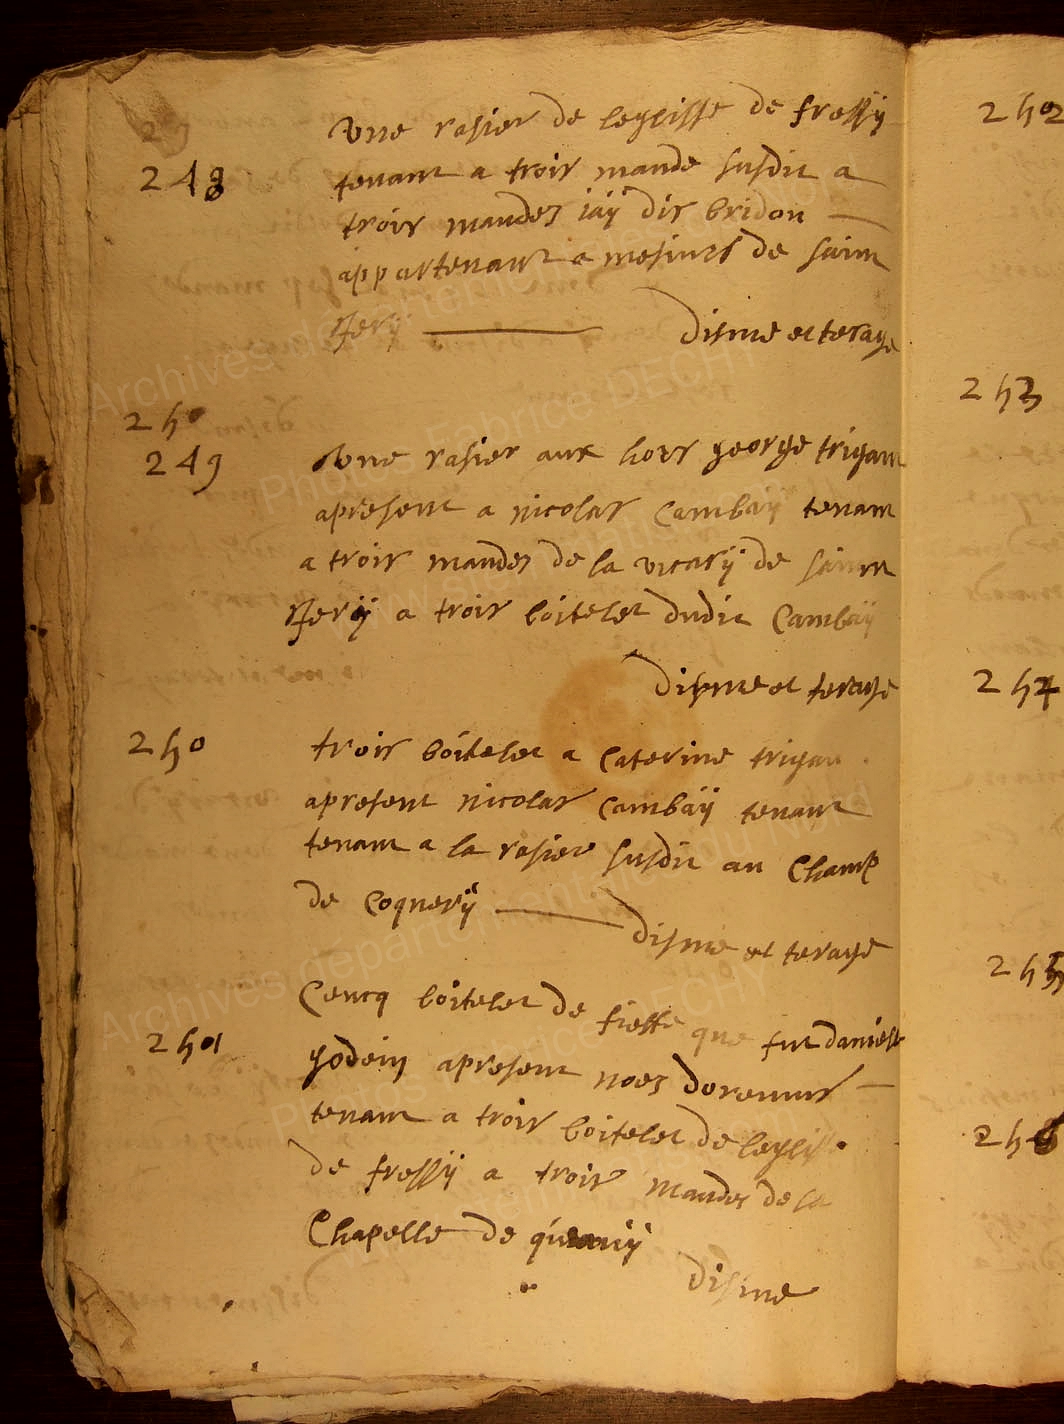 248
Une rasier de leglisse de fressÿ
tenant a trois mande susdit a
trois mandez iaÿ dis bridon
appartenant a mesiurs de saint
Jerÿ disme et terage
250
249
Une rasier aux hors george trigant
apresent a nicolas Cambaÿ tenant
a trois mandez de la vicarÿ de saint
Jerÿ a trois boitelet dudit Cambaÿ
disme et terage
250
trois boitelet a Caterine trigau
apresent nicolas Cambaÿ tenant
tenant a la rasier susdit au Champ
de Coquerÿ disme et terage
Cencq boitelet de fieffe que fut daniell
251
godein apresent noez doremus
tenant a trois boitelet de leglise
de fressÿ a trois mandez de la
Chapelle de
disme
252
253
254
255
256